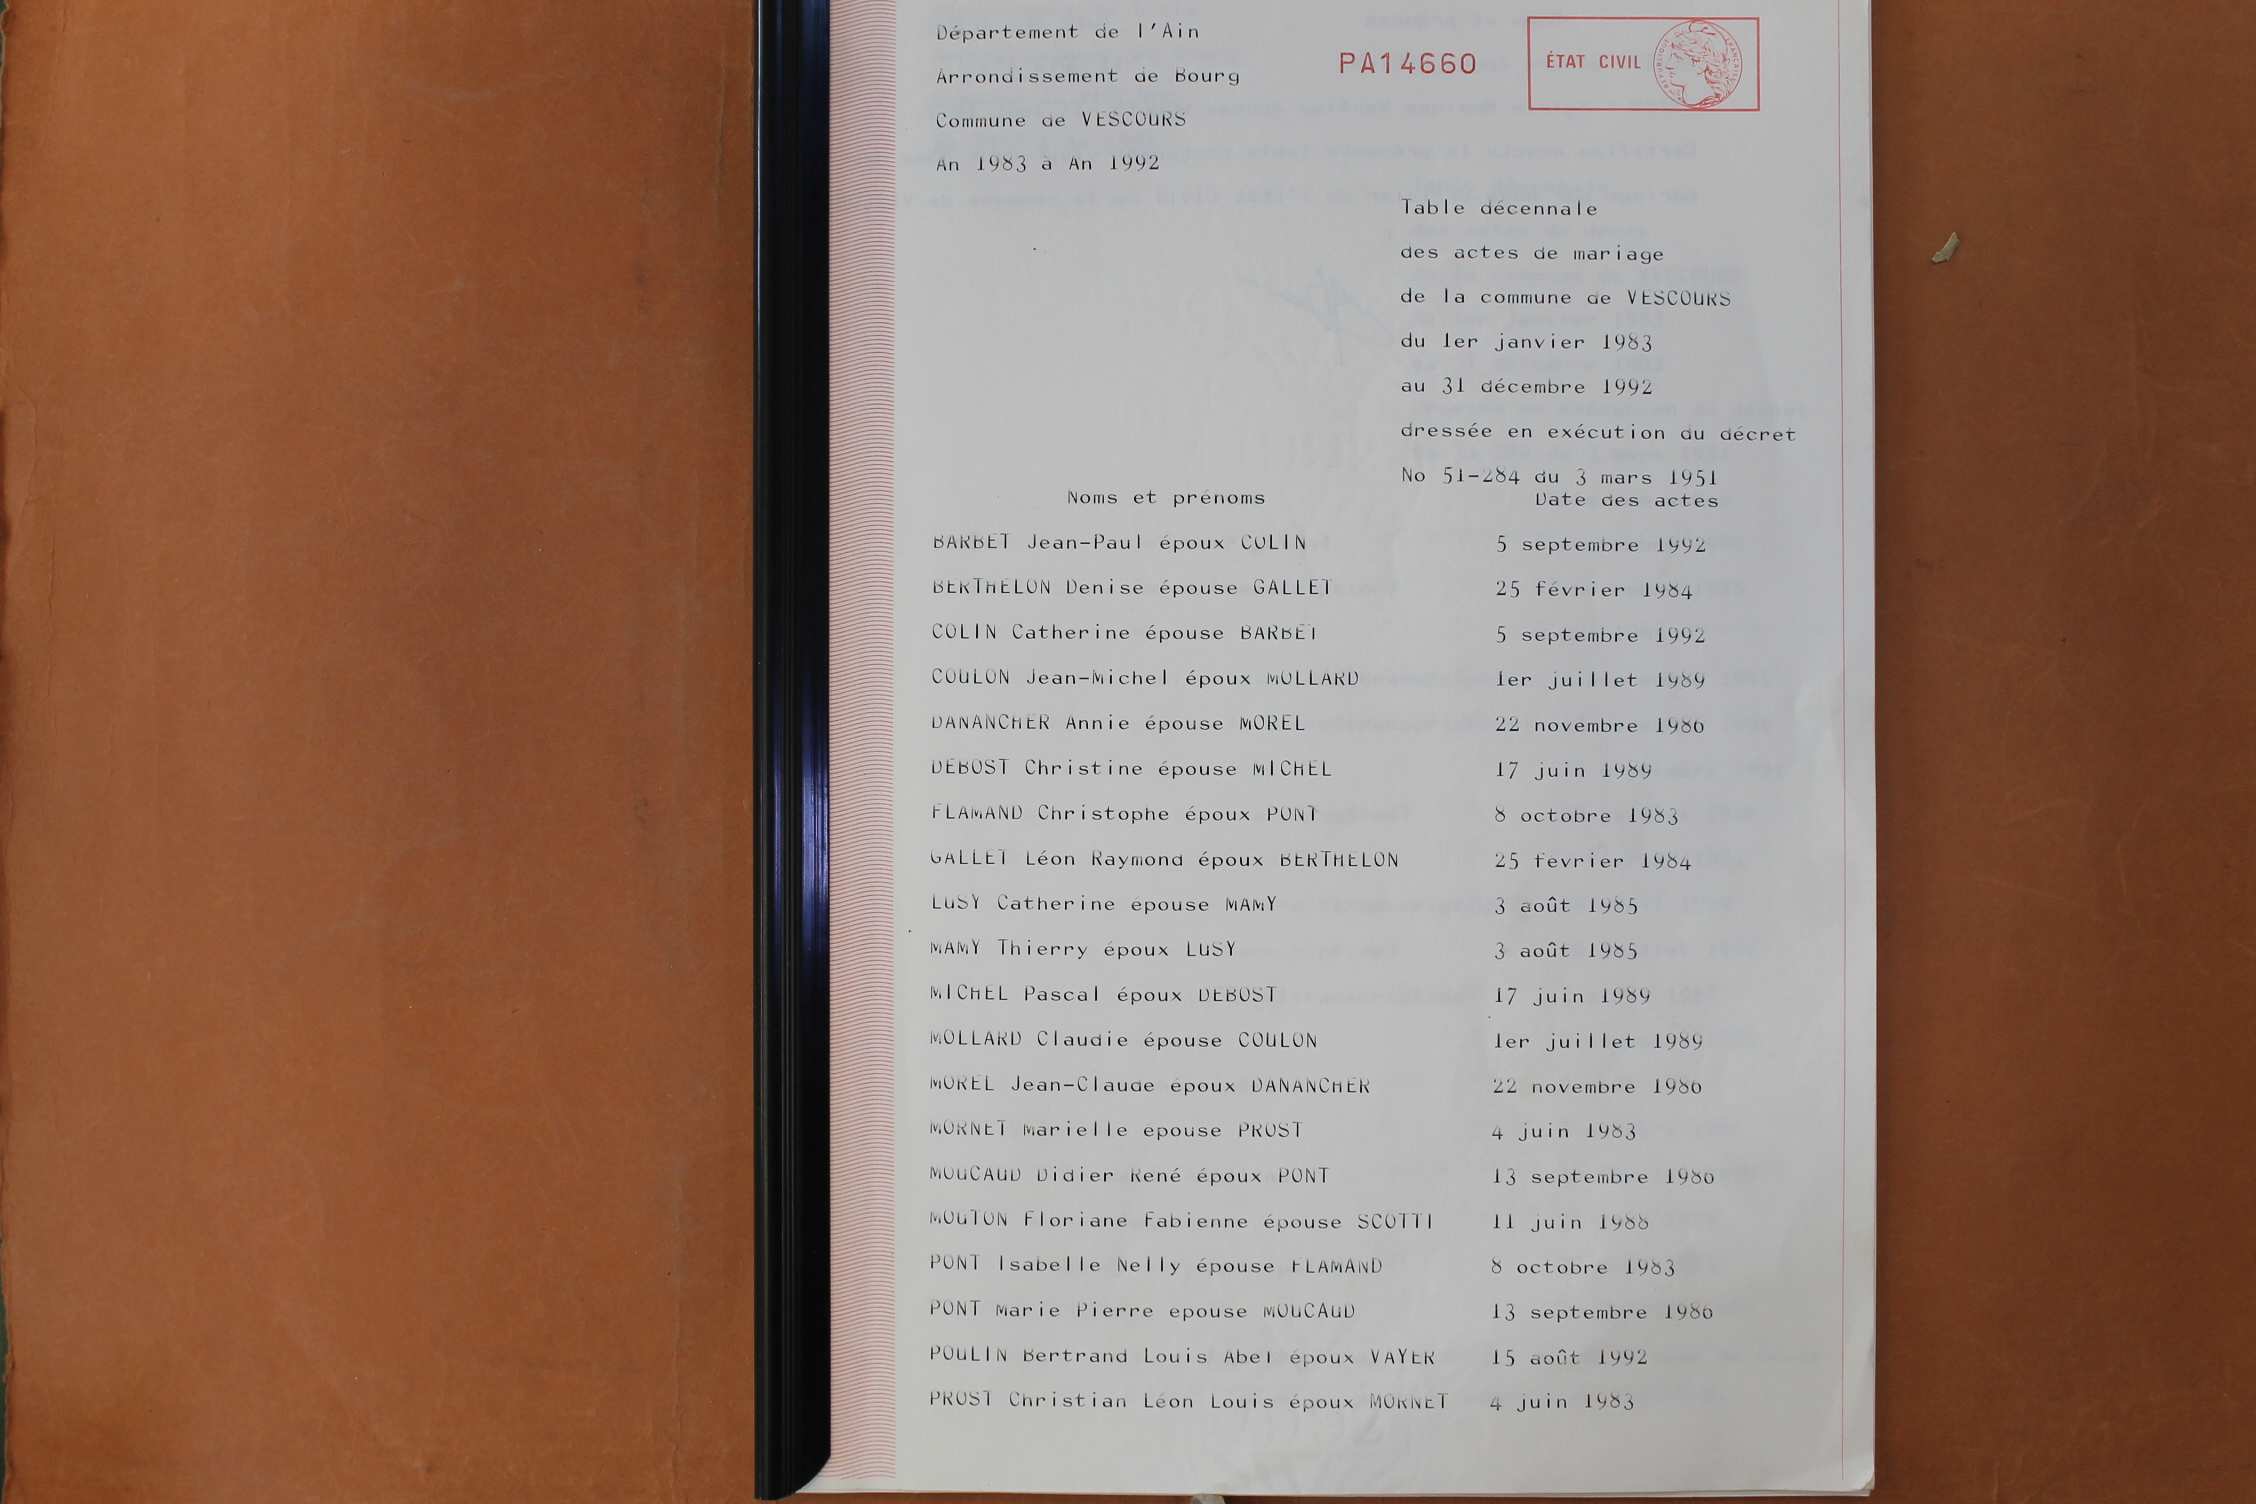 Département de l'Ain
Arrondissement de Bourg
Commune de VESCOURS
An 1983 à An 1992
PA14660
ÉTAT CIVIL
RÉPUBLIQUE FRANÇAISE
Table décennale
des actes de mariage
de la commune de VESCOURS
du 1er janvier 1983
au 31 décembre 1992
dressée en exécution du décret
No 51-284 du 3 mars 1951
Noms et prénoms Date des actes
BARBET Jean-Paul époux COLIN 5 septembre 1992
BERTHELON Denise épouse GALLET 25 février 1984
COLIN Catherine épouse BARBET 5 septembre 1992
COULON Jean-Michel époux MOLLARD 1er juillet 1989
DANANCHER Annie épouse MOREL 22 novembre 1986
DEBOST Christine épouse MICHEL 17 juin 1989
FLAMAND Christophe époux PONT 8 octobre 1983
GALLET Léon Raymond époux BERTHELON 25 fevrier 1984
LUSY Catherine épouse MAMY 3 août 1985
MAMY Thierry époux LUSY 3 août 1985
MICHEL Pascal époux DEBOST 17 juin 1989
MOLLARD Claudie épouse COULON 1er juillet 1989
MOREL Jean-Claude époux DANANCHER 22 novembre 1986
MORNET Marielle epouse PROST 4 juin 1983
MOUCAUD Didier René époux PONT 13 septembre 1986
MOUTON Floriane Fabienne épouse SCOTTI 11 juin 1988
PONT Isabelle Nelly épouse FLAMAND 8 octobre 1983
PONT Marie Pierre epouse MOUCAUD 13 septembre 1986
POULIN Bertrand Louis Abel époux VAYER 15 août 1992
PROST Christian Léon Louis époux MORNET 4 juin 1983